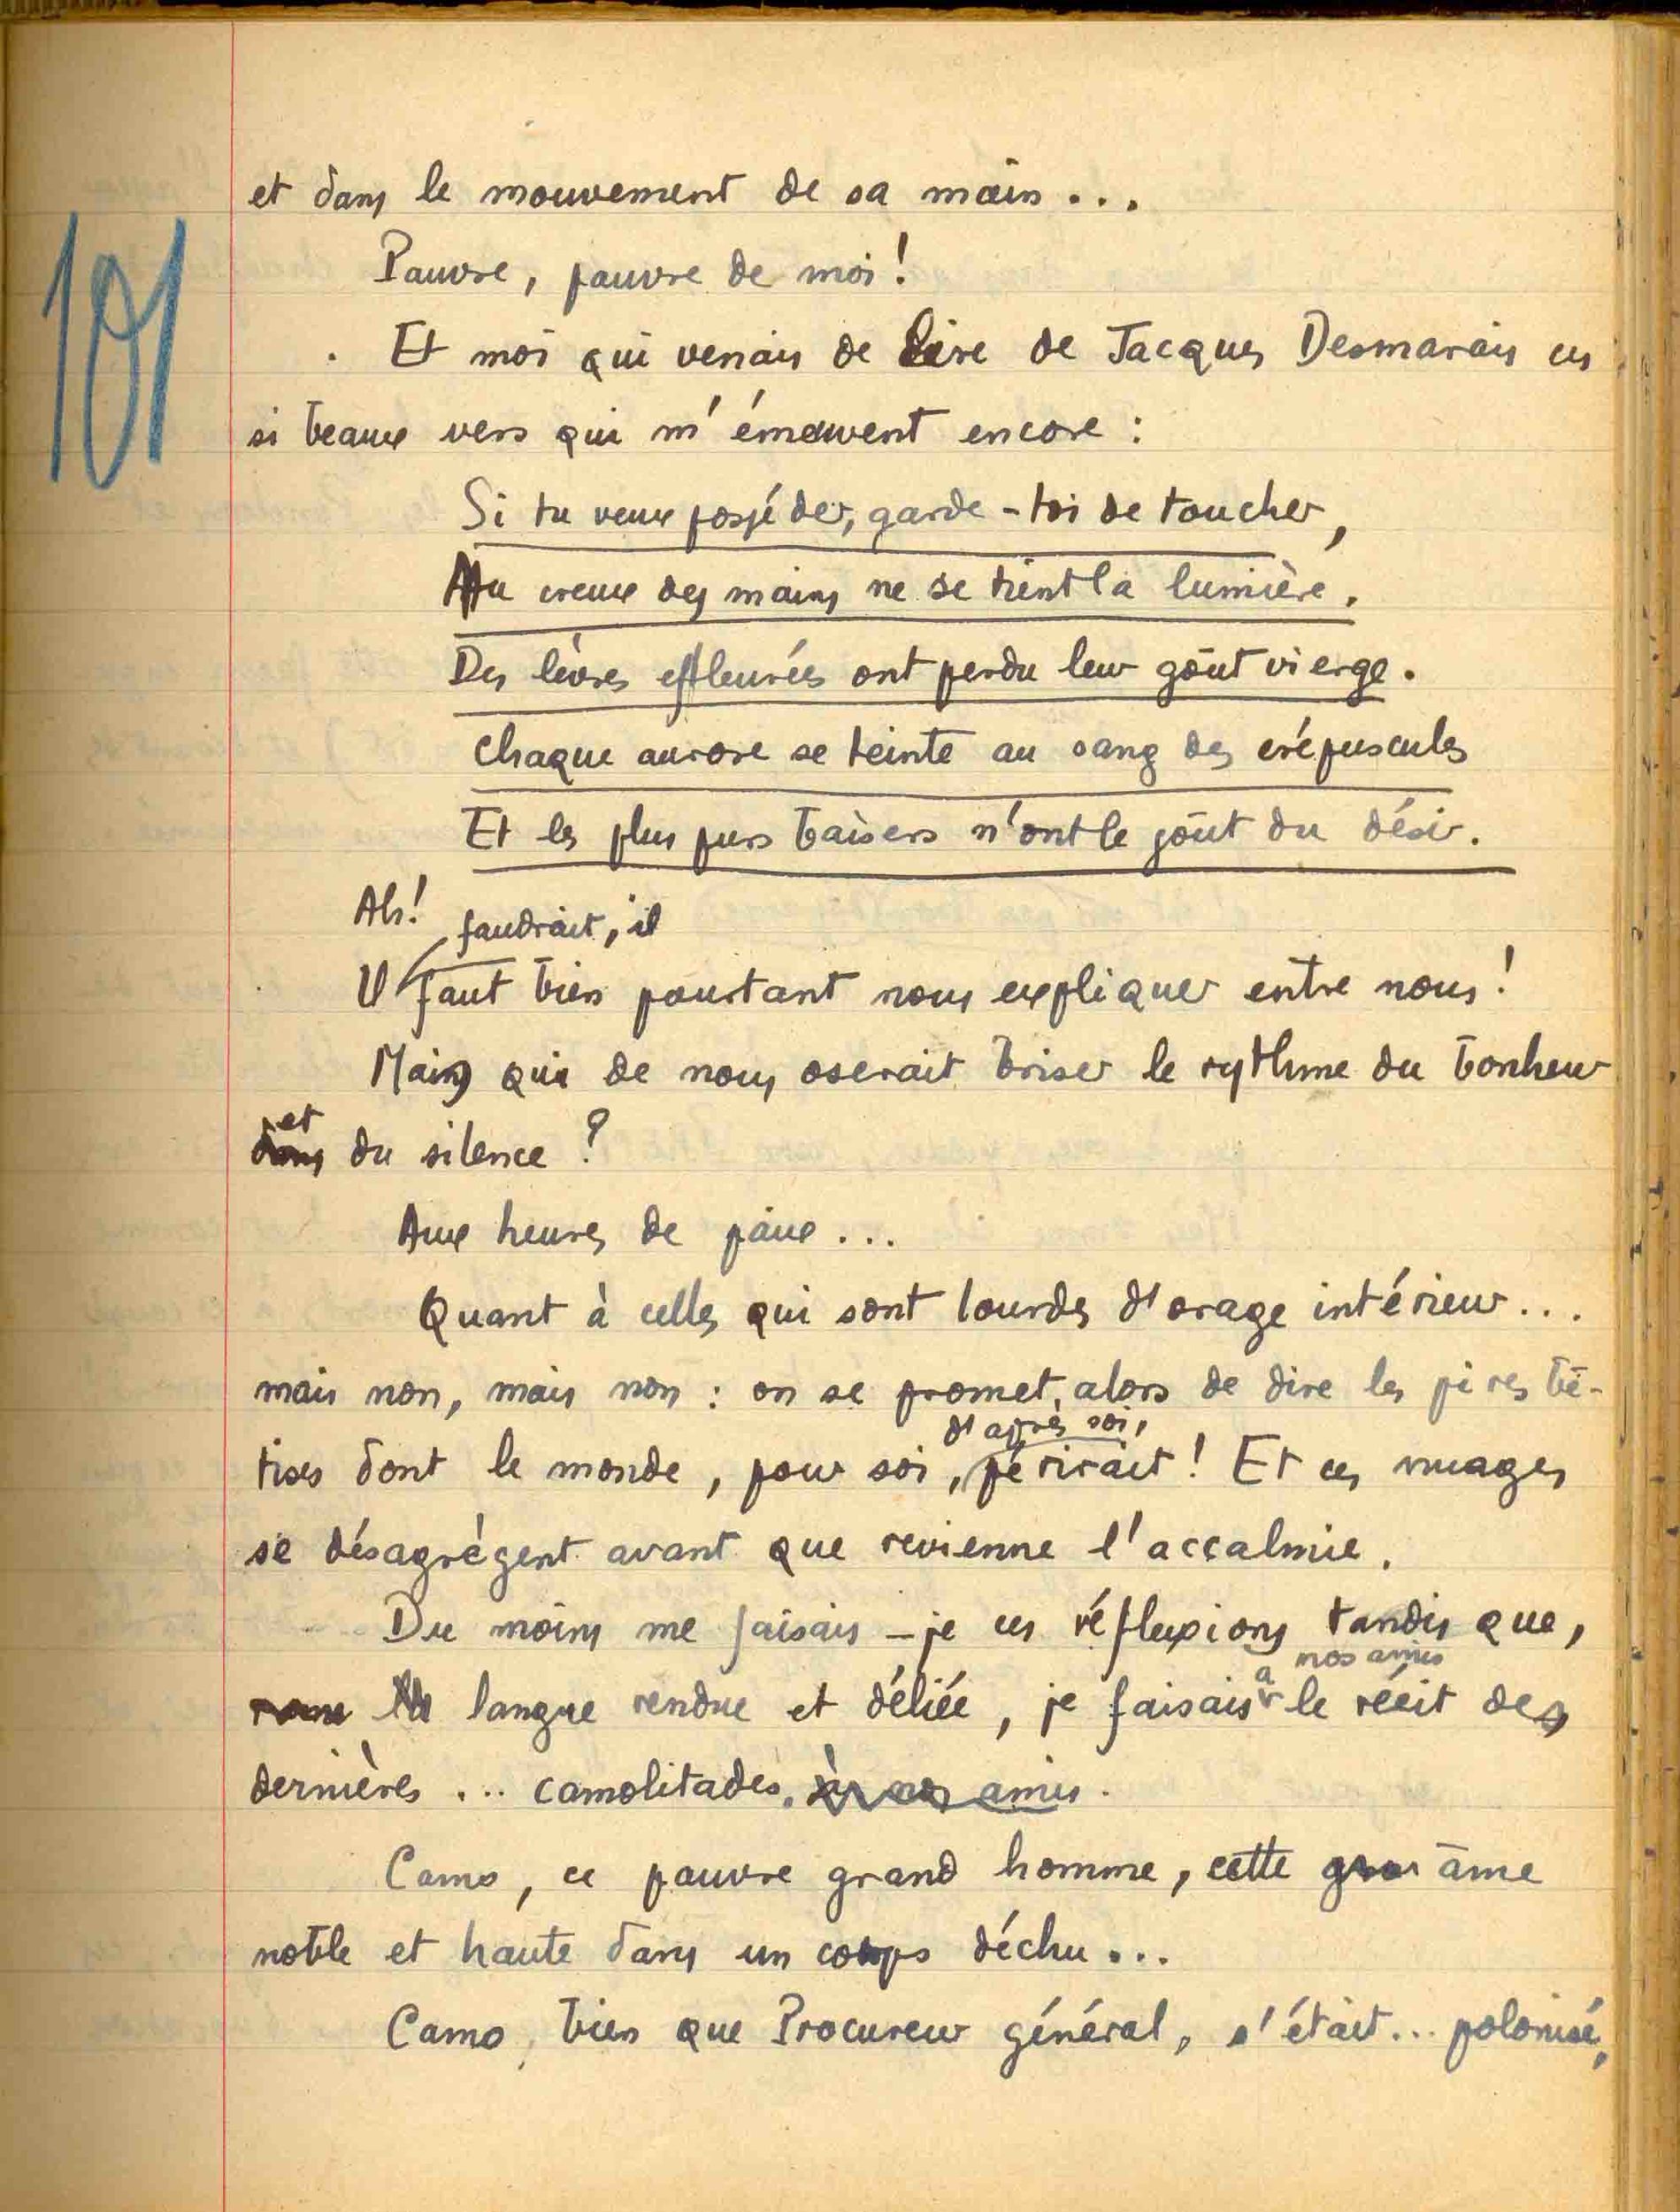 101
et dans le mouvement de sa main...
Pauvre, pauvre de moi !
Et moi qui venais de lire de Jacques Desmarais ces
si beaux vers qui m'émeuvent encore :
Si tu veux posséder, garde-toi de toucher,
Au creux des mains ne se tient la lumière.
Des lèvres effleurées ont perdu leur goût vierge.
Chaque aurore se teinte au sang des crépuscules
Et les plus purs baisers n'ont le goût du désir.
Ah! faudrait, il
Il faut bien pourtant nous expliquer entre nous !
Mais qui de nous oserait briser le rythme du bonheur
et
dans du silence ?
Aux heures de paix...
Quant à celles qui sont lourdes d'orage intérieur...
mais non, mais non : on se promet, alors de dire les pires bê-
d'après soi,
tises dont le monde, pour soi, périrait ! Et ces nuages
se désagrègent avant que revienne l'accalmie.
Du moins me faisais-je ces réflexions tandis que,
a nos amis
langue rendue et déliée, je faisais le récit des
dernières ... camolitades. à nos amis.
Camo, ce pauvre grand homme, cette âme
noble et haute dans un corps déchu...
Camo, bien que Procureur général, s'était... polonisé,